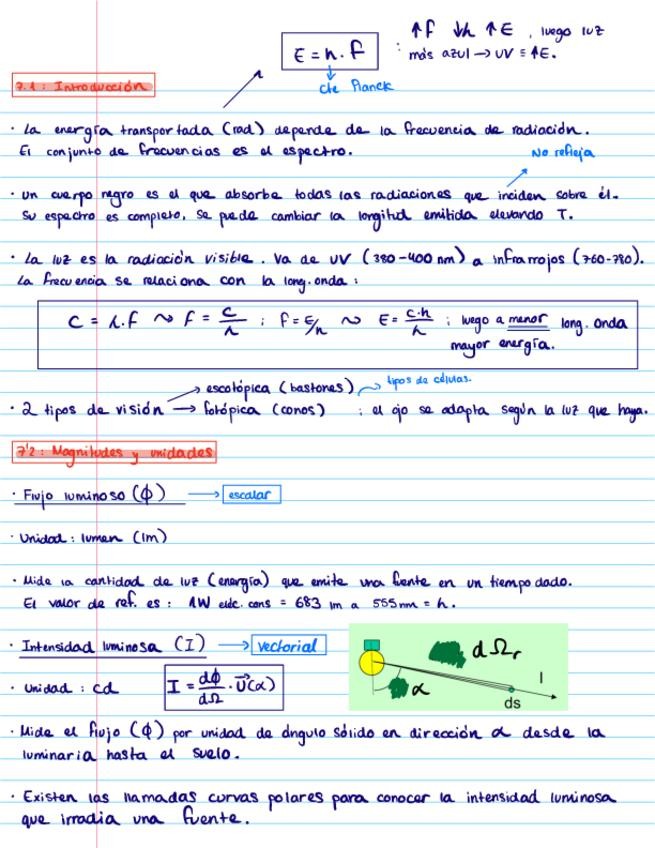 E = h. f : ↑f ↓λ ↑E , luego luz
más azul → UV ≡ ↑E.
cte Planck
7.1: Introducción
· La energía transportada (rad) depende de la frecuencia de radiación.
El conjunto de frecuencias es el espectro.
No refleja
· Un cuerpo negro es el que absorbe todas las radiaciones que inciden sobre él.
Su espectro es completo, se puede cambiar la longitud emitida elevando T.
· La luz es la radiación visible. Va de UV (380-400 nm) a infrarrojos (760-780).
La frecuencia se relaciona con la long. onda :
C = λ.f ~ f = C/λ ; f = E/h ~ E = C.h/λ ; luego a menor long. onda
mayor energía.
→ escotópica (bastones) → tipos de células.
· 2 tipos de visión → fotópica (conos) ; el ojo se adapta según la luz que haya.
7'2: Magnitudes y unidades
· Flujo luminoso (ϕ) → escalar
· Unidad : lumen (lm)
· Mide la cantidad de luz (energía) que emite una fuente en un tiempo dado.
El valor de ref. es : 1W elec. cons = 683 lm a 555nm = λ.
· Intensidad luminosa (I) → vectorial
· Unidad : cd I = dϕ/dΩ · U⃗(α)
dΩr
α
I
ds
· Mide el flujo (ϕ) por unidad de ángulo sólido en dirección α desde la
luminaria hasta el suelo.
· Existen las llamadas curvas polares para conocer la intensidad luminosa
que irradia una fuente.